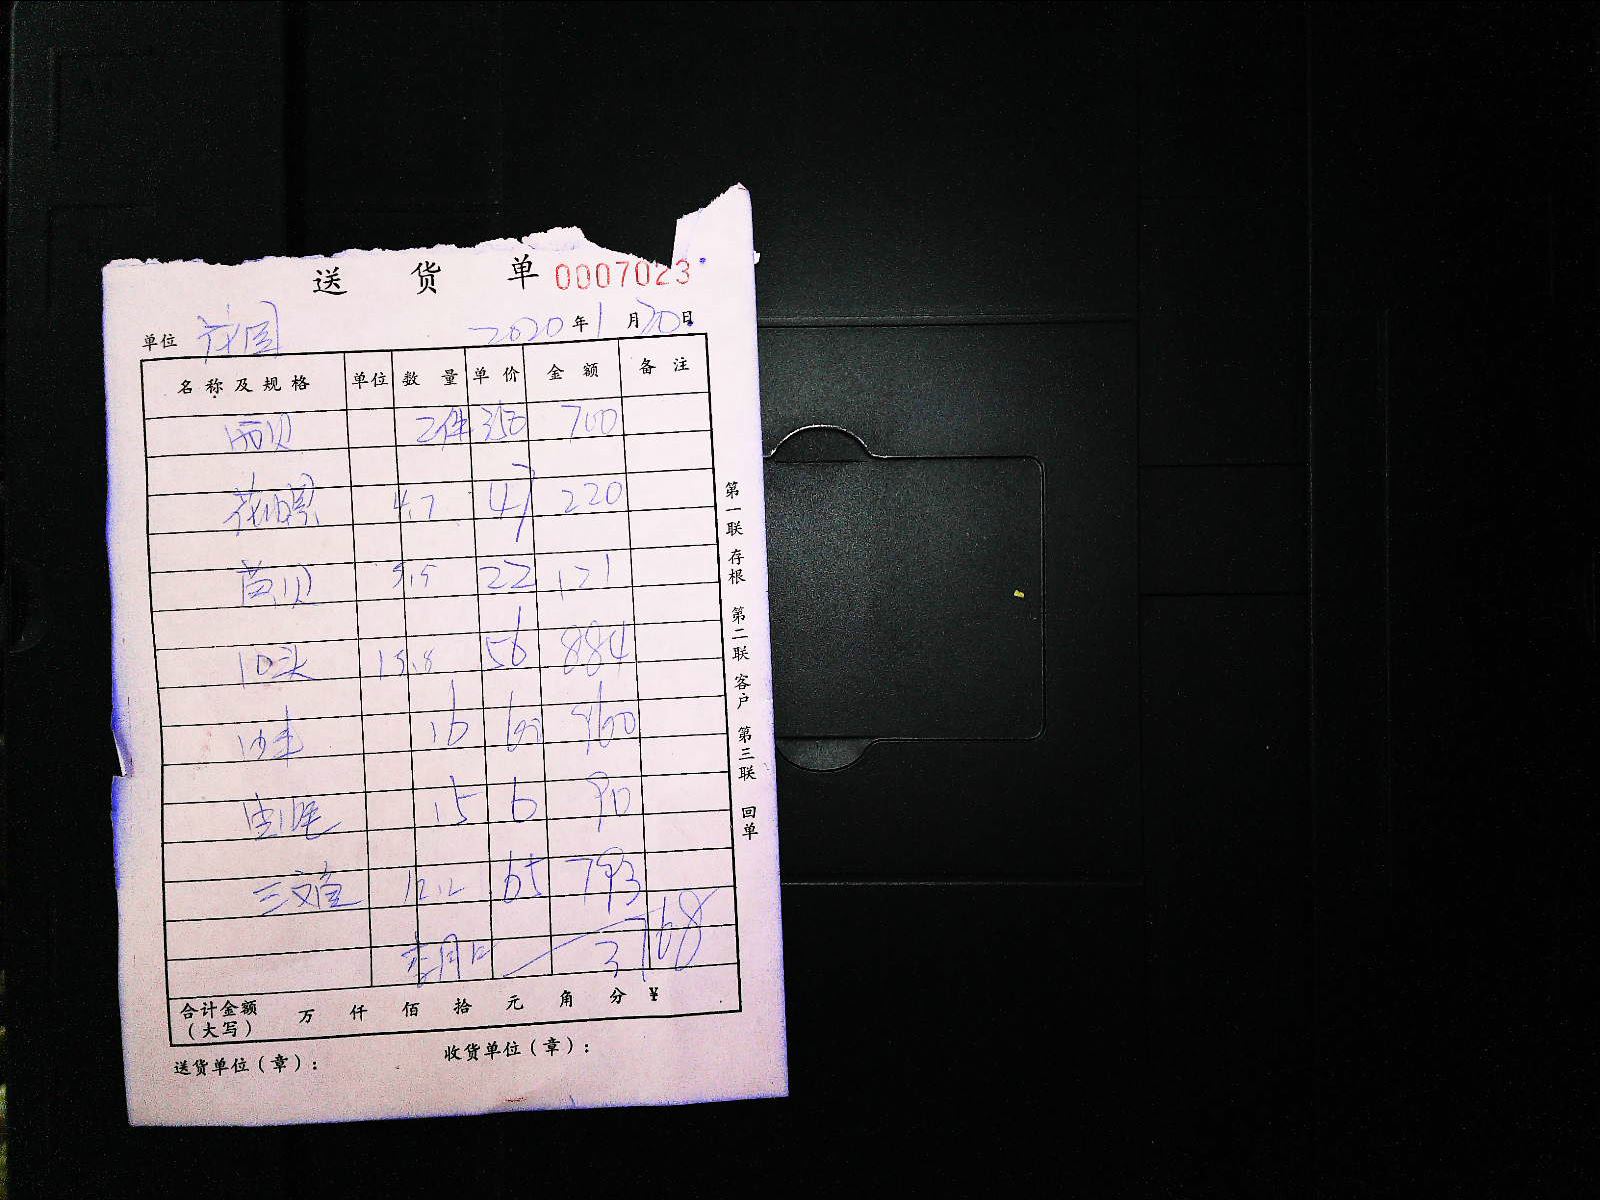 送 货 单 0007023
单位 2020 年 1 月 20 日
名称及规格 单位 数 量 单 价 金 额 备 注
2件 350 700
4.7 47 220
5.5 22 121
10头 15.8 56 884
16 60 960
15 6 90
三文鱼 12.2 65 793
3768
合计金额（大写） 万 仟 佰 拾 元 角 分 ¥
送货单位（章）： 收货单位（章）：
第一联 存根 第二联 客户 第三联 回单